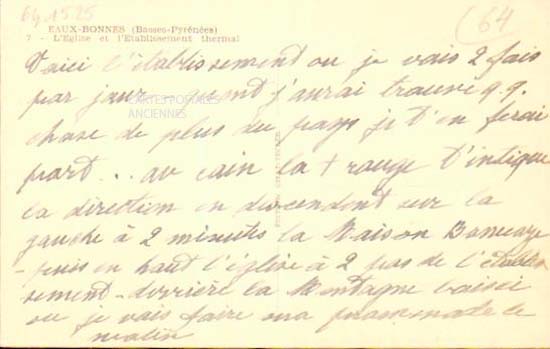 641525
(64)
EAUX-BONNES (Basses-Pyrénées)
7 - L'Eglise et l'Etablissement thermal
Voici l'établissement ou je vais 2 fois
par jour quand j'aurai trouvé q.q.
chose de plus du pays je t'en ferai
part... au coin la + rouge t'indique
la direction en descendent sur la
gauche à 2 minutes la Maison
- puis en haut l'église à 2 pas de l'établis
sement - derrière la Montagne
ou je vais faire ma promenade le
matin
CARTES POSTALES
ANCIENNES